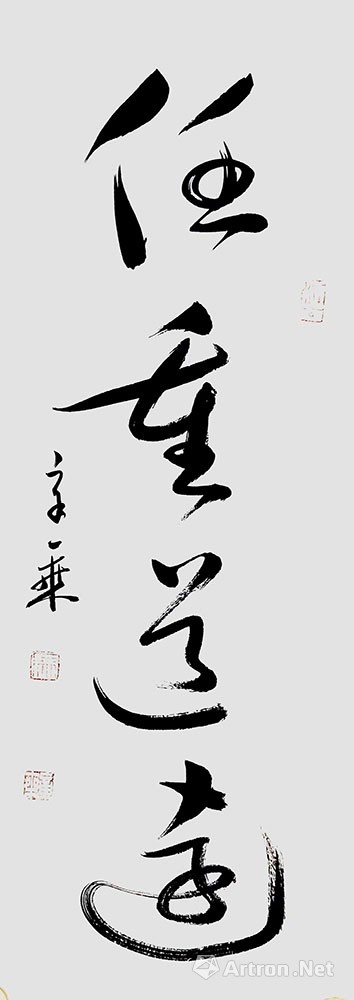 任重道远
Artron.Net